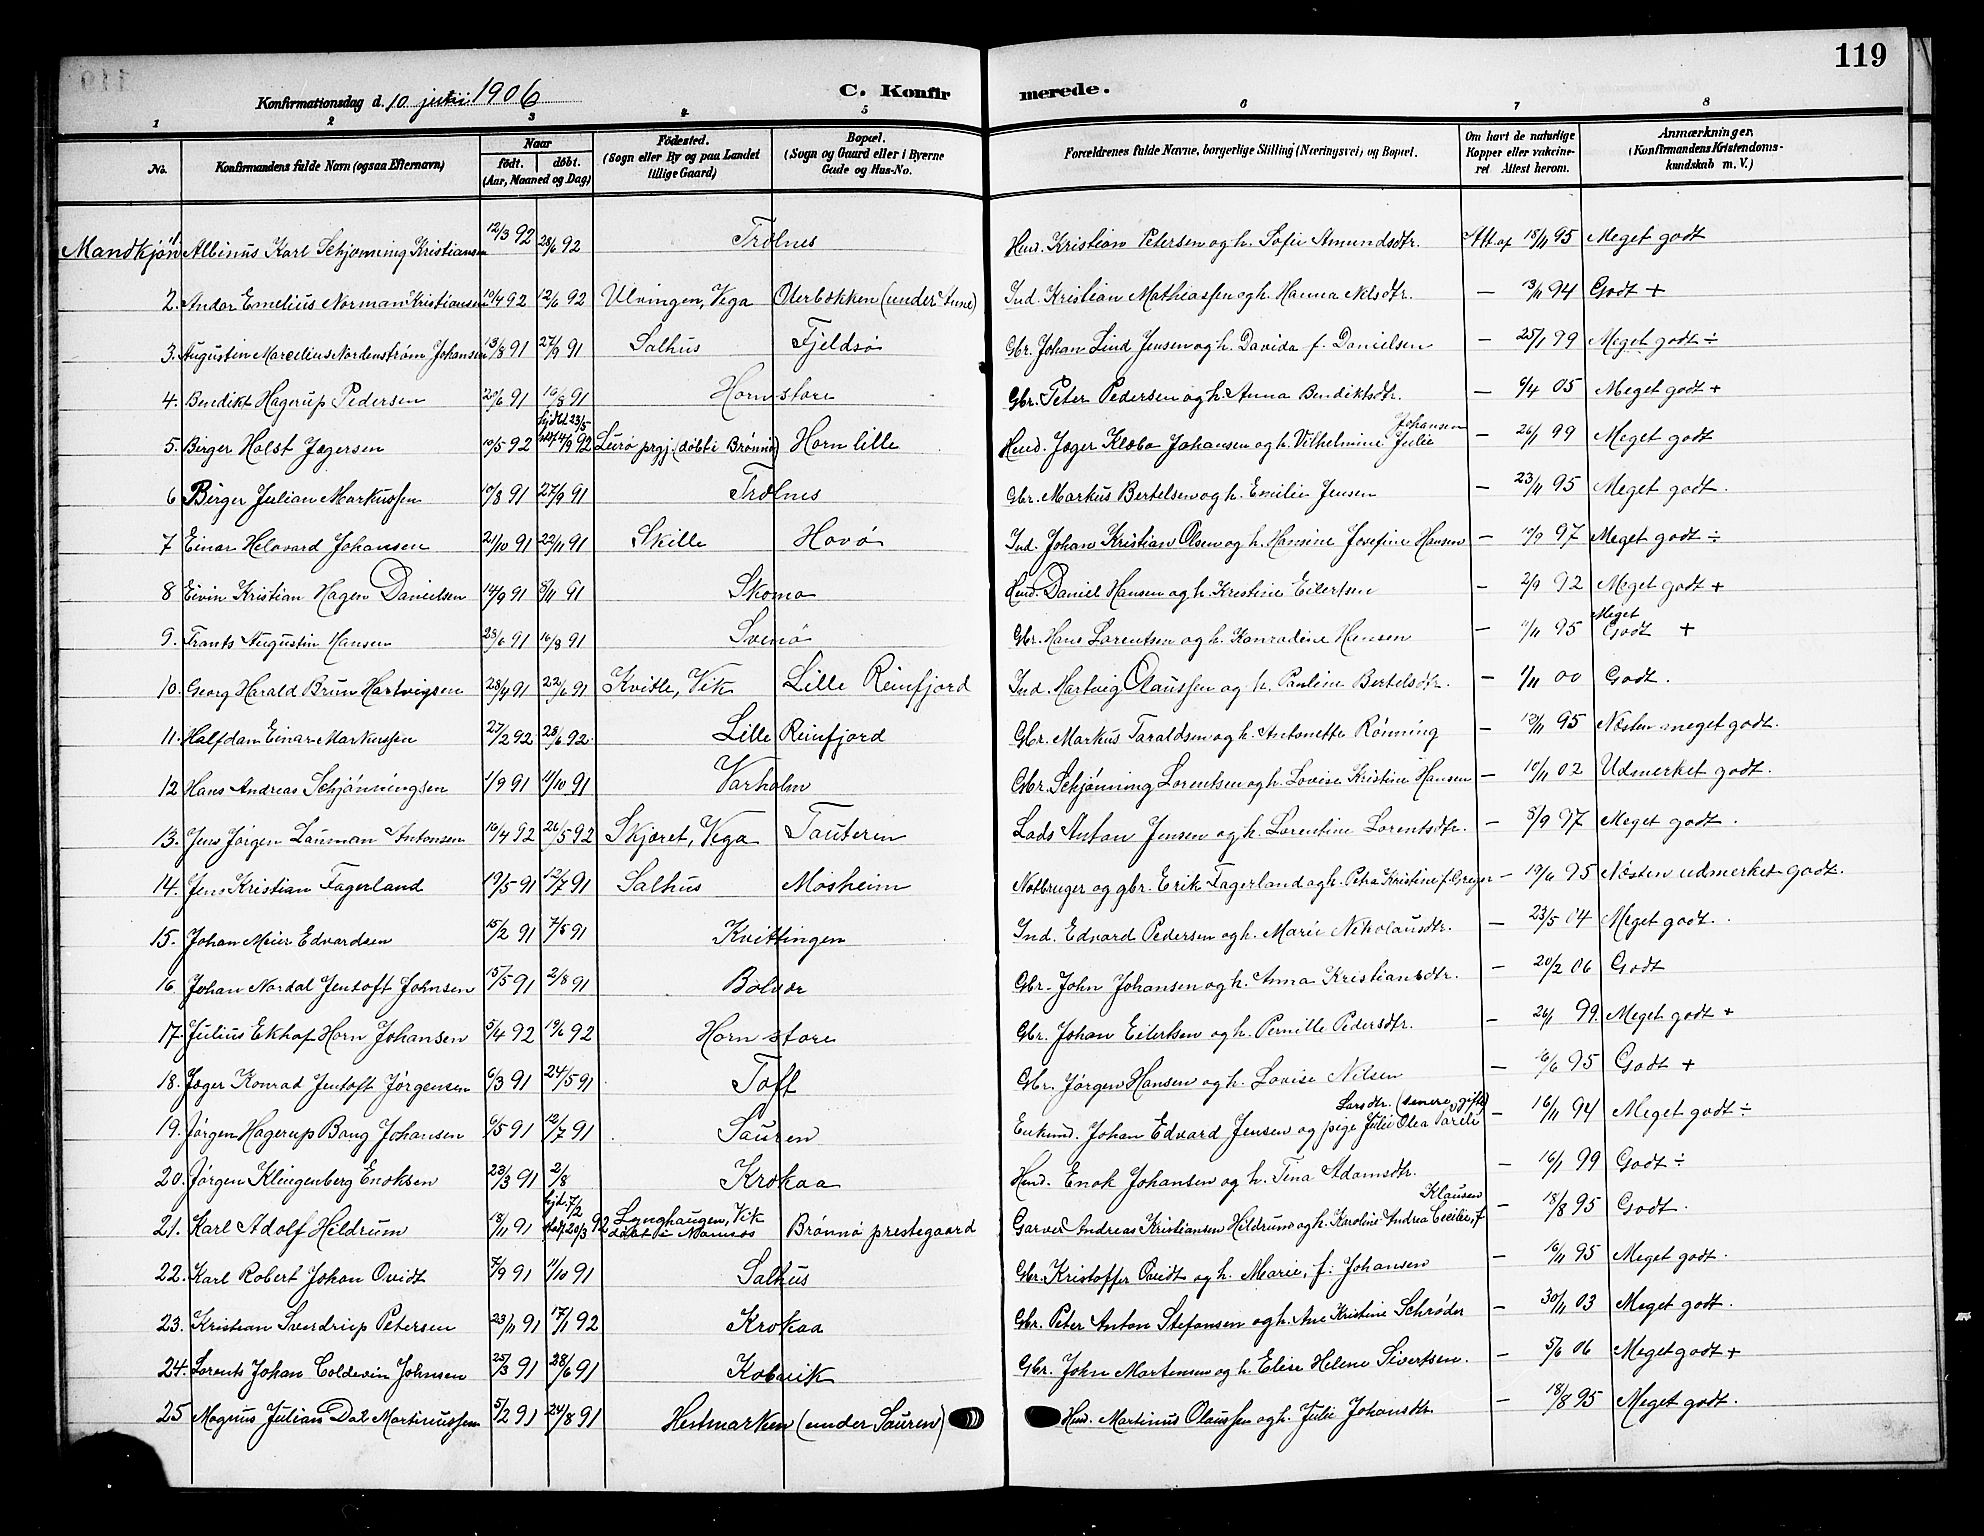 119
Konfirmationsdag d. 10 juni 1906 C. Konfirmerede.
1 2 3 4 5 6 7 8
No. Konfirmandens fulde Navn (ogsaa Efternavn) Naar født. døbt. (Aar, Maaned og Dag) Fødested. (Sogn eller By og paa Landet tillige Gaard) Bopæl. (Sogn og Gaard eller i Byerne Gade og Hus-No. Forældrenes fulde Navne, borgerlige Stilling (Næringsvei) og Bopæl. Om havt de naturlige Kopper eller vakcineret Attest herom. Anmærkninger, (Konfirmandens Kristendomskundskab m. V.)
Mandkjøn 1. Albinus Karl Schjønning Kristiansen 12/3 92 28/6 92 Trølnes Husm. Kristian Petersen og h. Sofie Amundsdtr. Att. af 18/11 95 Meget godt
2. Andor Emelius Norman Kristiansen 10/4 92 12/6 92 Ulvingen, Vega Oterbækken (under Tune) Ind. Kristian Mathiassen og h. Hanna Nilsdtr. — 13/11 94 Godt +
3. Augustin Marcelius Nordenstrøm Johansen 13/8 91 27/9 91 Salhus Fjeldsø Gbr. Johan Lind Jensen og h. Davida f. Danielsen — 25/1 99 Meget godt ÷
4. Benedikt Hagerup Pedersen 20/6 91 16/8 91 Horn store Gbr. Peter Pedersen og h. Anna Bendiktsdtr. — 9/4 05 Meget godt +
5. Birger Holst Jægersen 10/5 92 hjd. 23/5 stadf. 4/9 92 Lurø prgj. (døbt i Brønnø) Horn lille Husm. Jæger Klæbo Johansen og h. Vilhelmine Julie Johansen — 26/1 99 Meget godt
6 Birger Julian Markussen 10/8 91 27/9 91 Trølnes Gbr. Markus Bertelsen og h. Emilie Jensen — 23/11 95 Meget godt.
7 Einar Helovard Johansen 21/10 91 22/11 91 Skille Havø Ind. Johan Kristian Olsen og h. Hansine Josefine Hansen — 10/9 97 Meget godt ÷
8 Eivin Kristian Hagen Danielsen 14/9 91 8/11 91 Skomo Husm. Daniel Hansen og h. Kristine Eilertsen — 2/9 92 Meget godt +
9. Frants Augustin Hansen 28/6 91 16/8 91 Svenø Gbr. Hans Lorentsen og h. Konradine Hansen — 11/11 95 Meget Godt +
10. Georg Harald Brun Hartvigsen 28/4 91 22/6 91 Kvitle, Vik Lille Reinfjord Ind. Hartvig Olaussen og h. Pauline Bertelsdtr. — 1/11 00 Godt.
11. Halfdan Einar Markussen 27/2 92 28/6 92. Lille Reinfjord Gbr. Markus Taraldsen og h. Antonette Rønning — 13/11 95 Næsten meget godt.
12 Hans Andreas Schjønningsen 1/9 91 11/10 91 Varholm Gbr. Schjønning Lorentsen og h. Lovise Kristine Hansen — 10/11 02 Udmerket godt.
13. Jens Jørgen Lauman Antonsen 16/4 92 26/5 92 Skjæret, Vega Tauterin Lods Anton Jensen og h. Lorentine Lorentsdtr. — 8/9 97 Meget godt.
14. Jens Kristian Fagerland 19/5 91 12/7 91 Salhus Mosheim Notbruger og gbr. Erik Fagerland og h. Petra Kristine f. Greger — 19/6 95 Næsten udmerket godt.
15. Johan Meier Edvardsen 15/2 91 7/5 91 Kvittingen Ind. Edvard Pedersen og h. Marie Nikolausdtr. — 23/5 04 Meget godt.
16. Johan Nordal Jentoft Johnsen 15/5 91 2/8 91 Bolvær Gbr. John Johansen og h. Anna Kristiansdtr. — 20/2 06 Godt
17. Julius Ekhof Horn Johansen 5/4 92 19/6 92 Horn store Gbr. Johan Eilertsen og h. Pernille Pedersdtr. — 26/1 99. Meget godt +
18. Jæger Konrad Jentoft Jørgensen 6/3 91 24/5 91 Toft Gbr. Jørgen Hansen og h. Lovise Nilsen — 16/6 95 Godt +
19. Jørgen Hagerup Bang Johansen 6/5 91 12/7 91 Sauren Enkemd. Johan Edvard Jensen og pige Julie Olea Pareli Larsdtr. (senere gifte) — 16/11 94 Meget godt ÷
20. Jørgen Klingenberg Enoksen 23/3 91 2/8 Krokaa Husm. Enok Johansen og h. Tina Adamsdtr. — 16/1 99 Godt ÷
21. Karl Adolf Hildrum 18/11 91 hjd. 7/2 stadf. 20/3 92 Lynghaugen, Vik døbt i Namsos Brønnø prestegaard Garver Andreas Kristiansen Hildrum og h. Karoline Andrea Cecilie, f. Klausen — 18/8 95 Godt.
22. Karl Robert Johan Qvidt 7/9 91 11/10 91 Salhus Gbr. Kristoffer Qvidt og h. Marie, f. Johansen — 16/11 95 Meget godt.
23. Kristian Sverdrup Petersen 23/11 91 17/1 92 Krokaa Gbr. Peter Anton Stefansen og h. Ane Kristine Schrøder — 30/11 03 Meget godt.
24. Lorents Johan Coldevin Johnsen 25/3 91 28/6 91 Kobvik Gbr. John Martensen og h. Elise Helene Sivertsen. — 5/6 06 Meget godt +
25 Magnus Julian Dal Martinussen 5/2 91 24/8 91 Hestmarken (under Sauren) Husm. Martinus Olaussen og h. Julie Johansdtr. — 18/8 95 Meget godt.